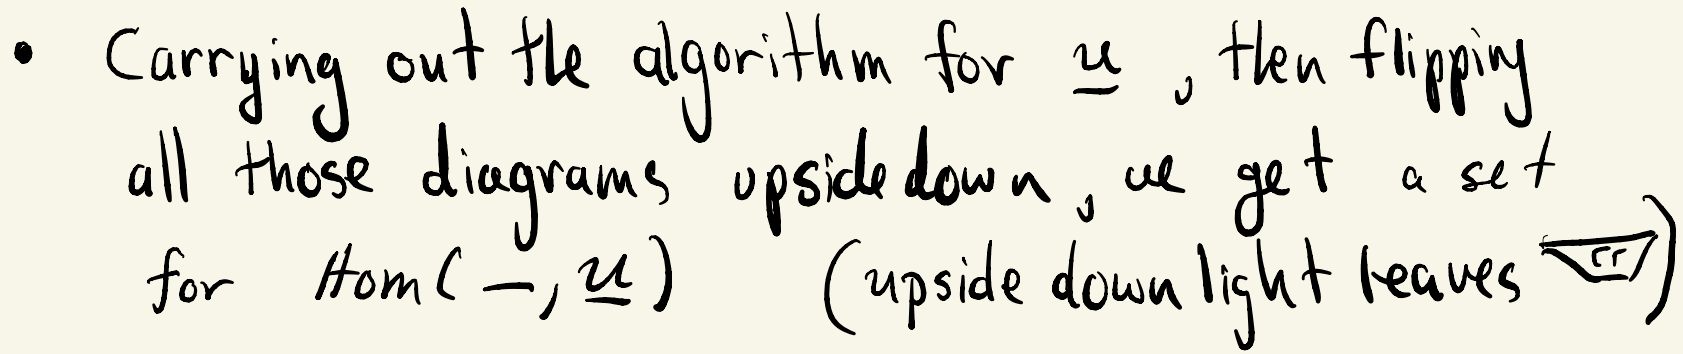 • Carrying out the algorithm for u, then flipping
all those diagrams upside down, we get a set
for Hom(—, u) (upside down light leaves)